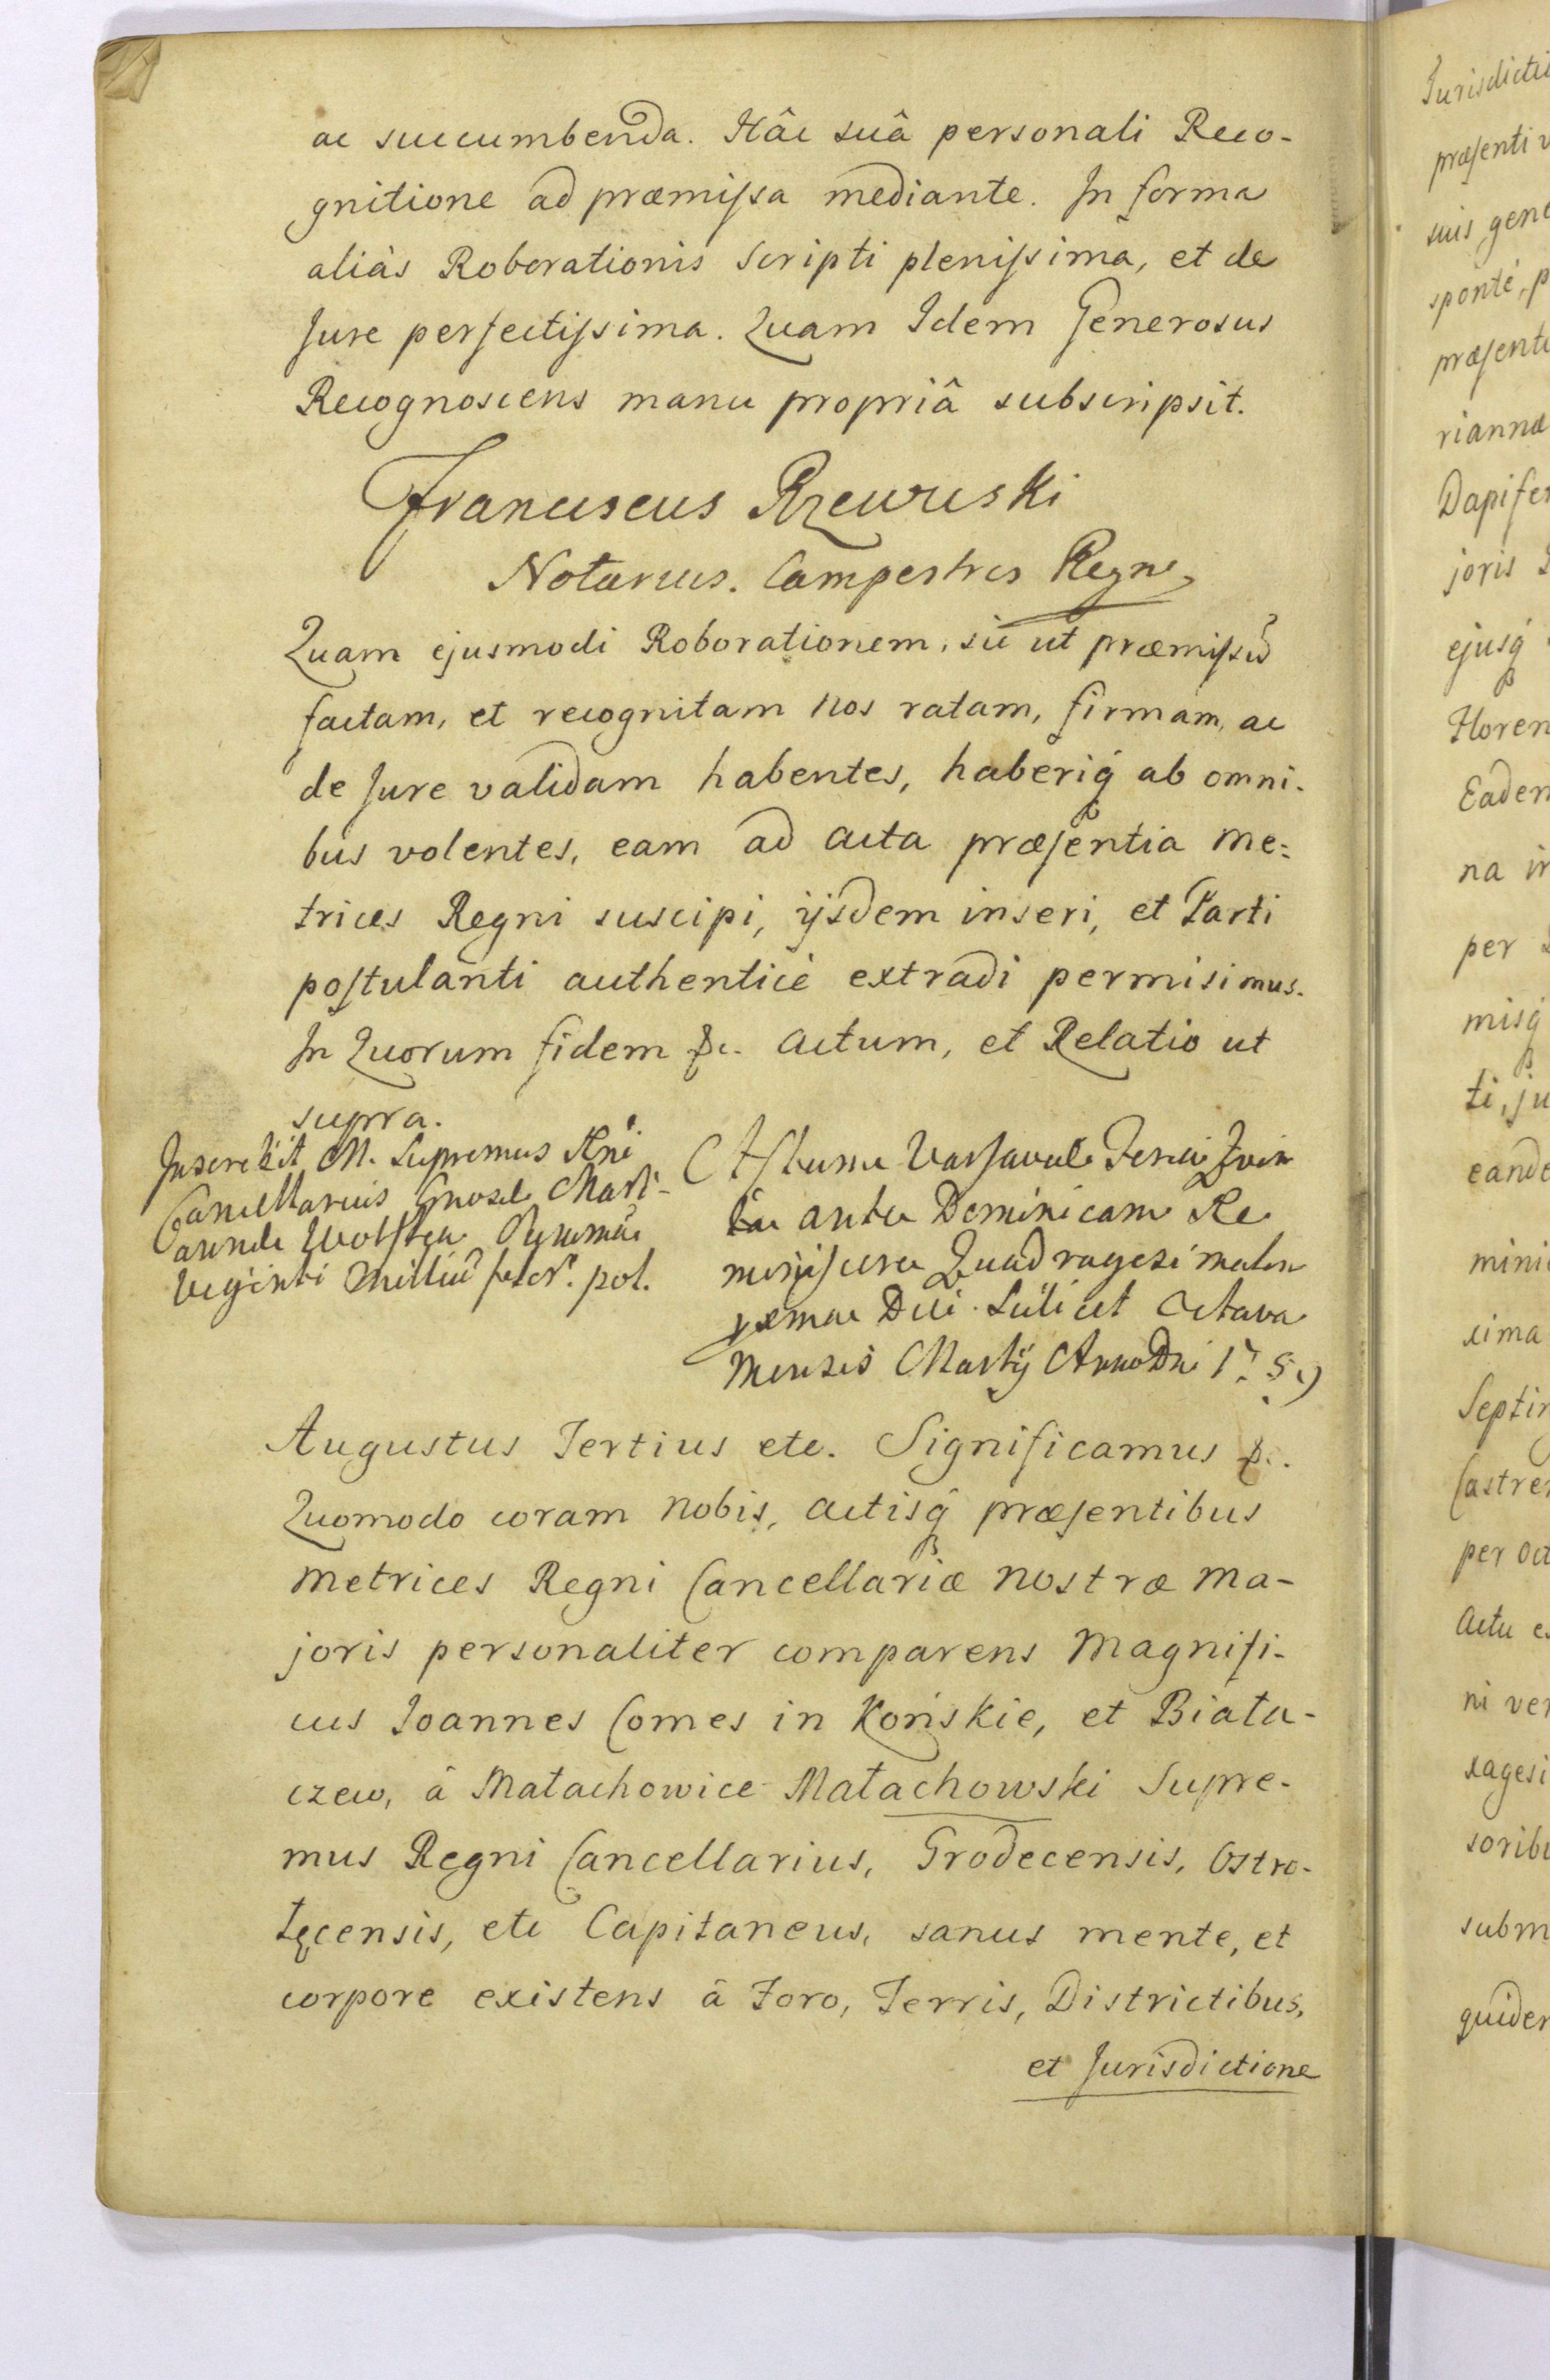 ac succumbenda. Hâc suâ personali Reco-
gnitione ad præmiſsa mediante. In forma
aliàs Roborationis Scripti pleniſsima, et de
Jure perfectiſsima. Quam Idem Generosus
Recognoscens manu propriâ subscripsit.
Franciscus Rzewuski
Notarius. Campestris Regni
Quam ejusmodi Roborationem, sic ut præmiſsũ
factam, et recognitam nos ratam, firmam, ac
de Jure validam habentes, haberiq́ ab omni-
bus volentes, eam ad acta præſentia Me-
trices Regni suscipi, ijsdem inseri, et Parti
poſtulanti authenticè extradi permisimus.
In Quorum fidem &c. Actum, et Relatio ut
supra.
Inscribit M. Supremus Rni
Cancellarius Gnosæ Mari-
annæ Wolska Summã
Viginti Milliũ flor. pol.
Actum Varsaviæ Feria Quin
ta ante Dominicam Re
miniſcere Quadragesimalem
proxima Die Scilicet Octava
Mensis Martij Anno Dni 175
Augustus Tertius etc. Significamus &c.
Quomodo coram nobis, Actisq́ præſentibus
Metrices Regni Cancellariæ nostræ Ma-
joris personaliter comparens Magnifi-
cus Joannes Comes in Końskie, et Biała-
czew, â Małachowice Małachowski Supre-
mus Regni Cancellarius, Grodecensis, Ostro-
łęcensis, etc Capitaneus, sanus mente, et
corpore existens â Foro, Terris, Districtibus,
et Jurisdictione
Jurisdicti
præſenti
suis gene
spontè, p
præſent
riannæ
Dapifer
joris
ejusq́
Floren
Eadem
na in
per
misq́
ti, ju
eande
mini
xima
Septin
Castren
per
Actu
ni ver
xagesi
soribu
subm
quidem